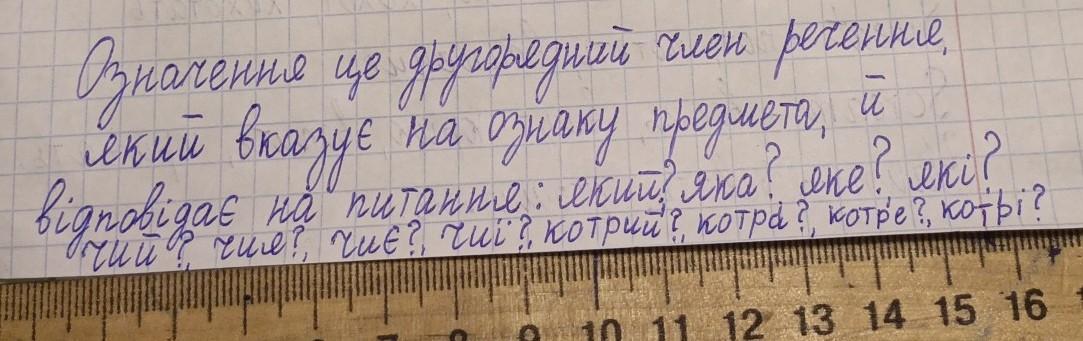 Означення це другорядний член речення,
який вказує на ознаку предмета, й
відповідає на питання: який? яка? яке? які?
чий?, чия?, чиє?, чиї?, котрий?, котра?, котре?, котрі?
7 8 9 10 11 12 13 14 15 16